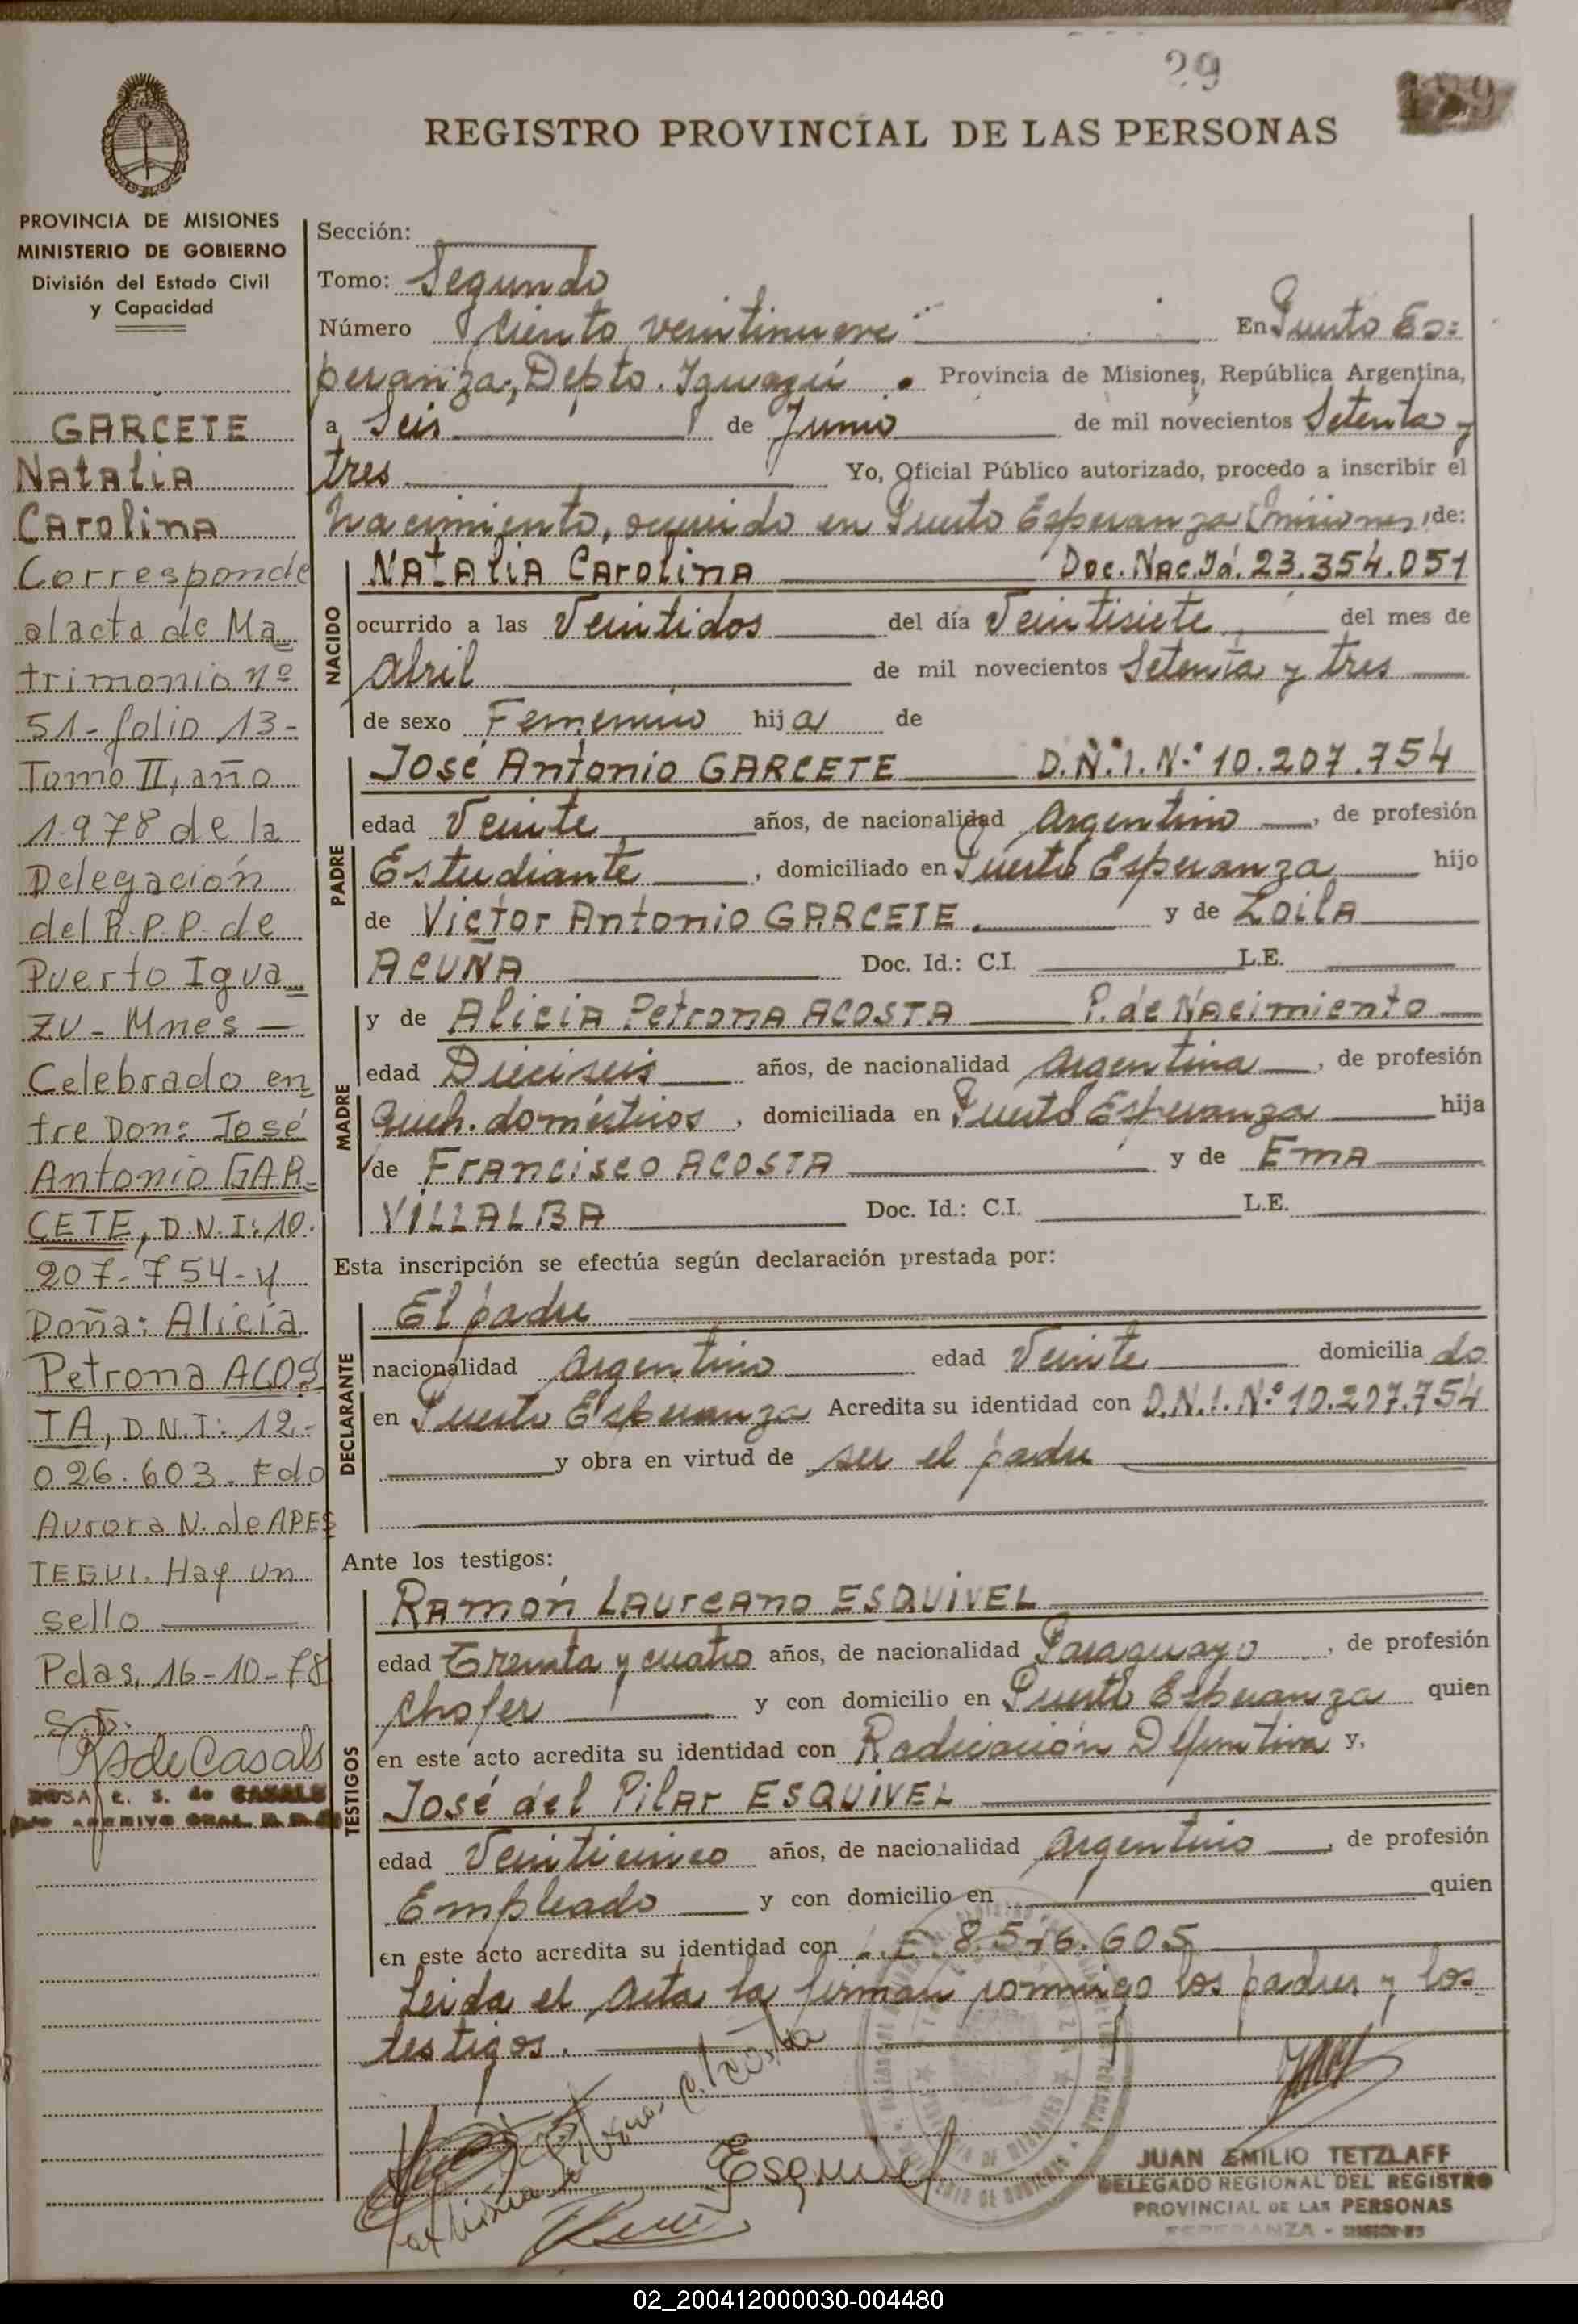 29
REGISTRO PROVINCIAL DE LAS PERSONAS
PROVINCIA DE MISIONES
MINISTERIO DE GOBIERNO
División del Estado Civil
y Capacidad
GARCETE
Natalia
Carolina
Corresponde
al acta de Ma
trimonio nº
51 - folio 13 -
Tomo II, año
1.978 de la
Delegación
del R.P.P. de
Puerto Igua
zu - Mnes —
Celebrado en
tre Don: José
Antonio GAR-
CETE, D.N.I: 10.
207-754-y
Doña: Alicia
Petrona ACOS
TA, D.N.I: 12.-
026.603. Fdo
Aurora N. de APES
TEGUI. Hay un
sello
Pdas, 16-10-78
RSdeCasals
ROSA E. S. de CASALS
Sección:
Tomo: Segundo
Número Ciento veintinueve En Puerto Es=
peranza, Depto. Iguazú . Provincia de Misiones, República Argentina,
a Seis de Junio de mil novecientos Setenta y
tres Yo, Oficial Público autorizado, procedo a inscribir el
nacimiento, ocurrido en Puerto Esperanza (Misiones) de:
NACIDO
Natalia Carolina Doc. Nac. Id. 23.354.051
ocurrido a las Veintidos del día Veintisiete del mes de
Abril de mil novecientos Setenta y tres
de sexo Femenino hija de
PADRE
José Antonio GARCETE D.N.I. Nº 10.207.754
edad Veinte años, de nacionalidad Argentino , de profesión
Estudiante , domiciliado en Puerto Esperanza hijo
de Victor Antonio GARCETE y de Zoila
ACUÑA Doc. Id.: C.I. L.E.
MADRE
y de Alicia Petrona ACOSTA P. de Nacimiento
edad Dieciseis años, de nacionalidad Argentina , de profesión
Queh. domésticos , domiciliada en Puerto Esperanza hija
de Francisco ACOSTA y de Ema
VILLALBA Doc. Id.: C.I. L.E.
Esta inscripción se efectúa según declaración prestada por:
DECLARANTE
El padre
nacionalidad Argentino edad Veinte domiciliado
en Puerto Esperanza Acredita su identidad con D.N.I. Nº 10.207.754
y obra en virtud de ser el padre
Ante los testigos:
TESTIGOS
Ramón Laureano ESQUIVEL
edad Treinta y cuatro años, de nacionalidad Paraguayo , de profesión
Chofer y con domicilio en Puerto Esperanza quien
en este acto acredita su identidad con Radicación Definitiva y,
José del Pilar ESQUIVEL
edad Veinticinco años, de nacionalidad Argentino , de profesión
Empleado y con domicilio en quien
en este acto acredita su identidad con L.E. 8.516.605
Leida el Acta la firman conmigo los padres y los
testigos.
Esquivel
JUAN EMILIO TETZLAFF
DELEGADO REGIONAL DEL REGISTRO
PROVINCIAL DE LAS PERSONAS
ESPERANZA - MISIONES
02_200412000030-004480